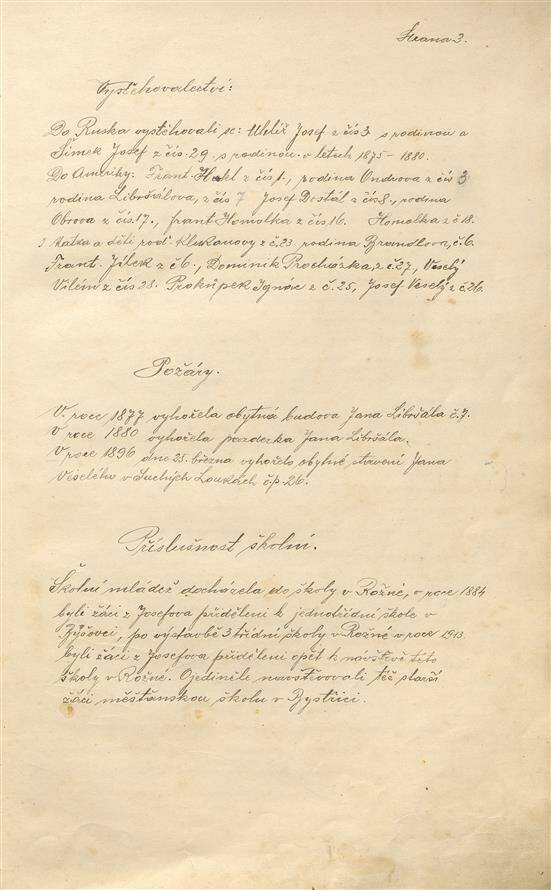 Strana 3.
Vystěhovalectví:
Do Ruska vystěhovali se: Uhlíř Josef z čís 3 s rodinou a
Šimek Josef z čís. 29. s rodinou v letech 1875 – 1880.
Do Ameriky: Frant. z čís 1., rodina Ondrova z čís 3
rodina Libršálova, z čís 7 Josef Dostál z čís 8., rodina
Obrova z čís. 17., frant Homolka z čís 16. Homolka z č 18.
matka a děti rod. Klukanovy z č. 23. rodina Brandlova, č. 6.
Frant. Jílek z č 6., Dominik Procházka, z č. 27, Veselý
Vilém z čís 28. Prokůpek Ignác z č. 25, Josef Veselý z č. 26.
Požáry.
V. roce 1877 vyhořela obytná budova Jana Libršála č. 7.
V roce 1880 vyhořela pazderka Jana Libršála.
V roce 1896 dne 25. března vyhořelo obytné stavení Jana
Veselého v Suchých Loukách č.p. 26.
Příslušnost školní.
Školní mládež docházela do školy v Rožné, v roce 1884
byli žáci z Josefova přiděleni k jednotřídní škole v
Býšovci, po výstavbě 3 třídní školy v Rožné v roce 1913
byli žáci z Josefova přiděleni opět k návštěvě této
školy v Rožné. Ojediněle navštěvovali též starší
žáci měšťanskou školu v Bystřici.